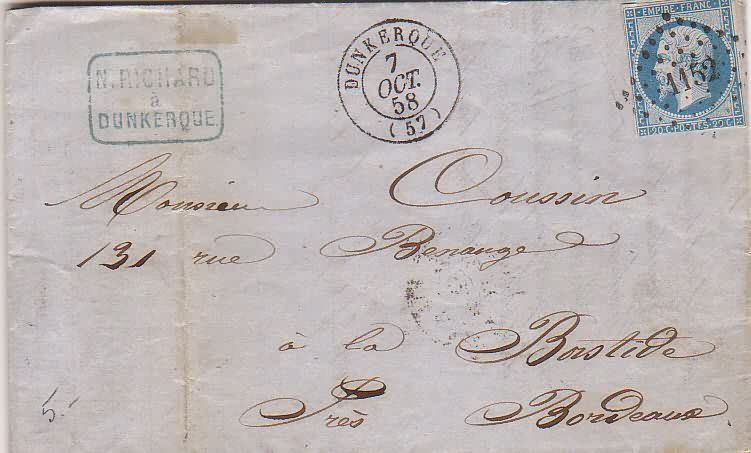 N. RICHARD
à
DUNKERQUE.
DUNKERQUE
7
OCT.
58
(57)
EMPIRE FRANC.
1152
20 C. POSTES 20 C.
Monsieur Coussin
131 rue Benauge
à la Bastide
Près Bordeaux
5.